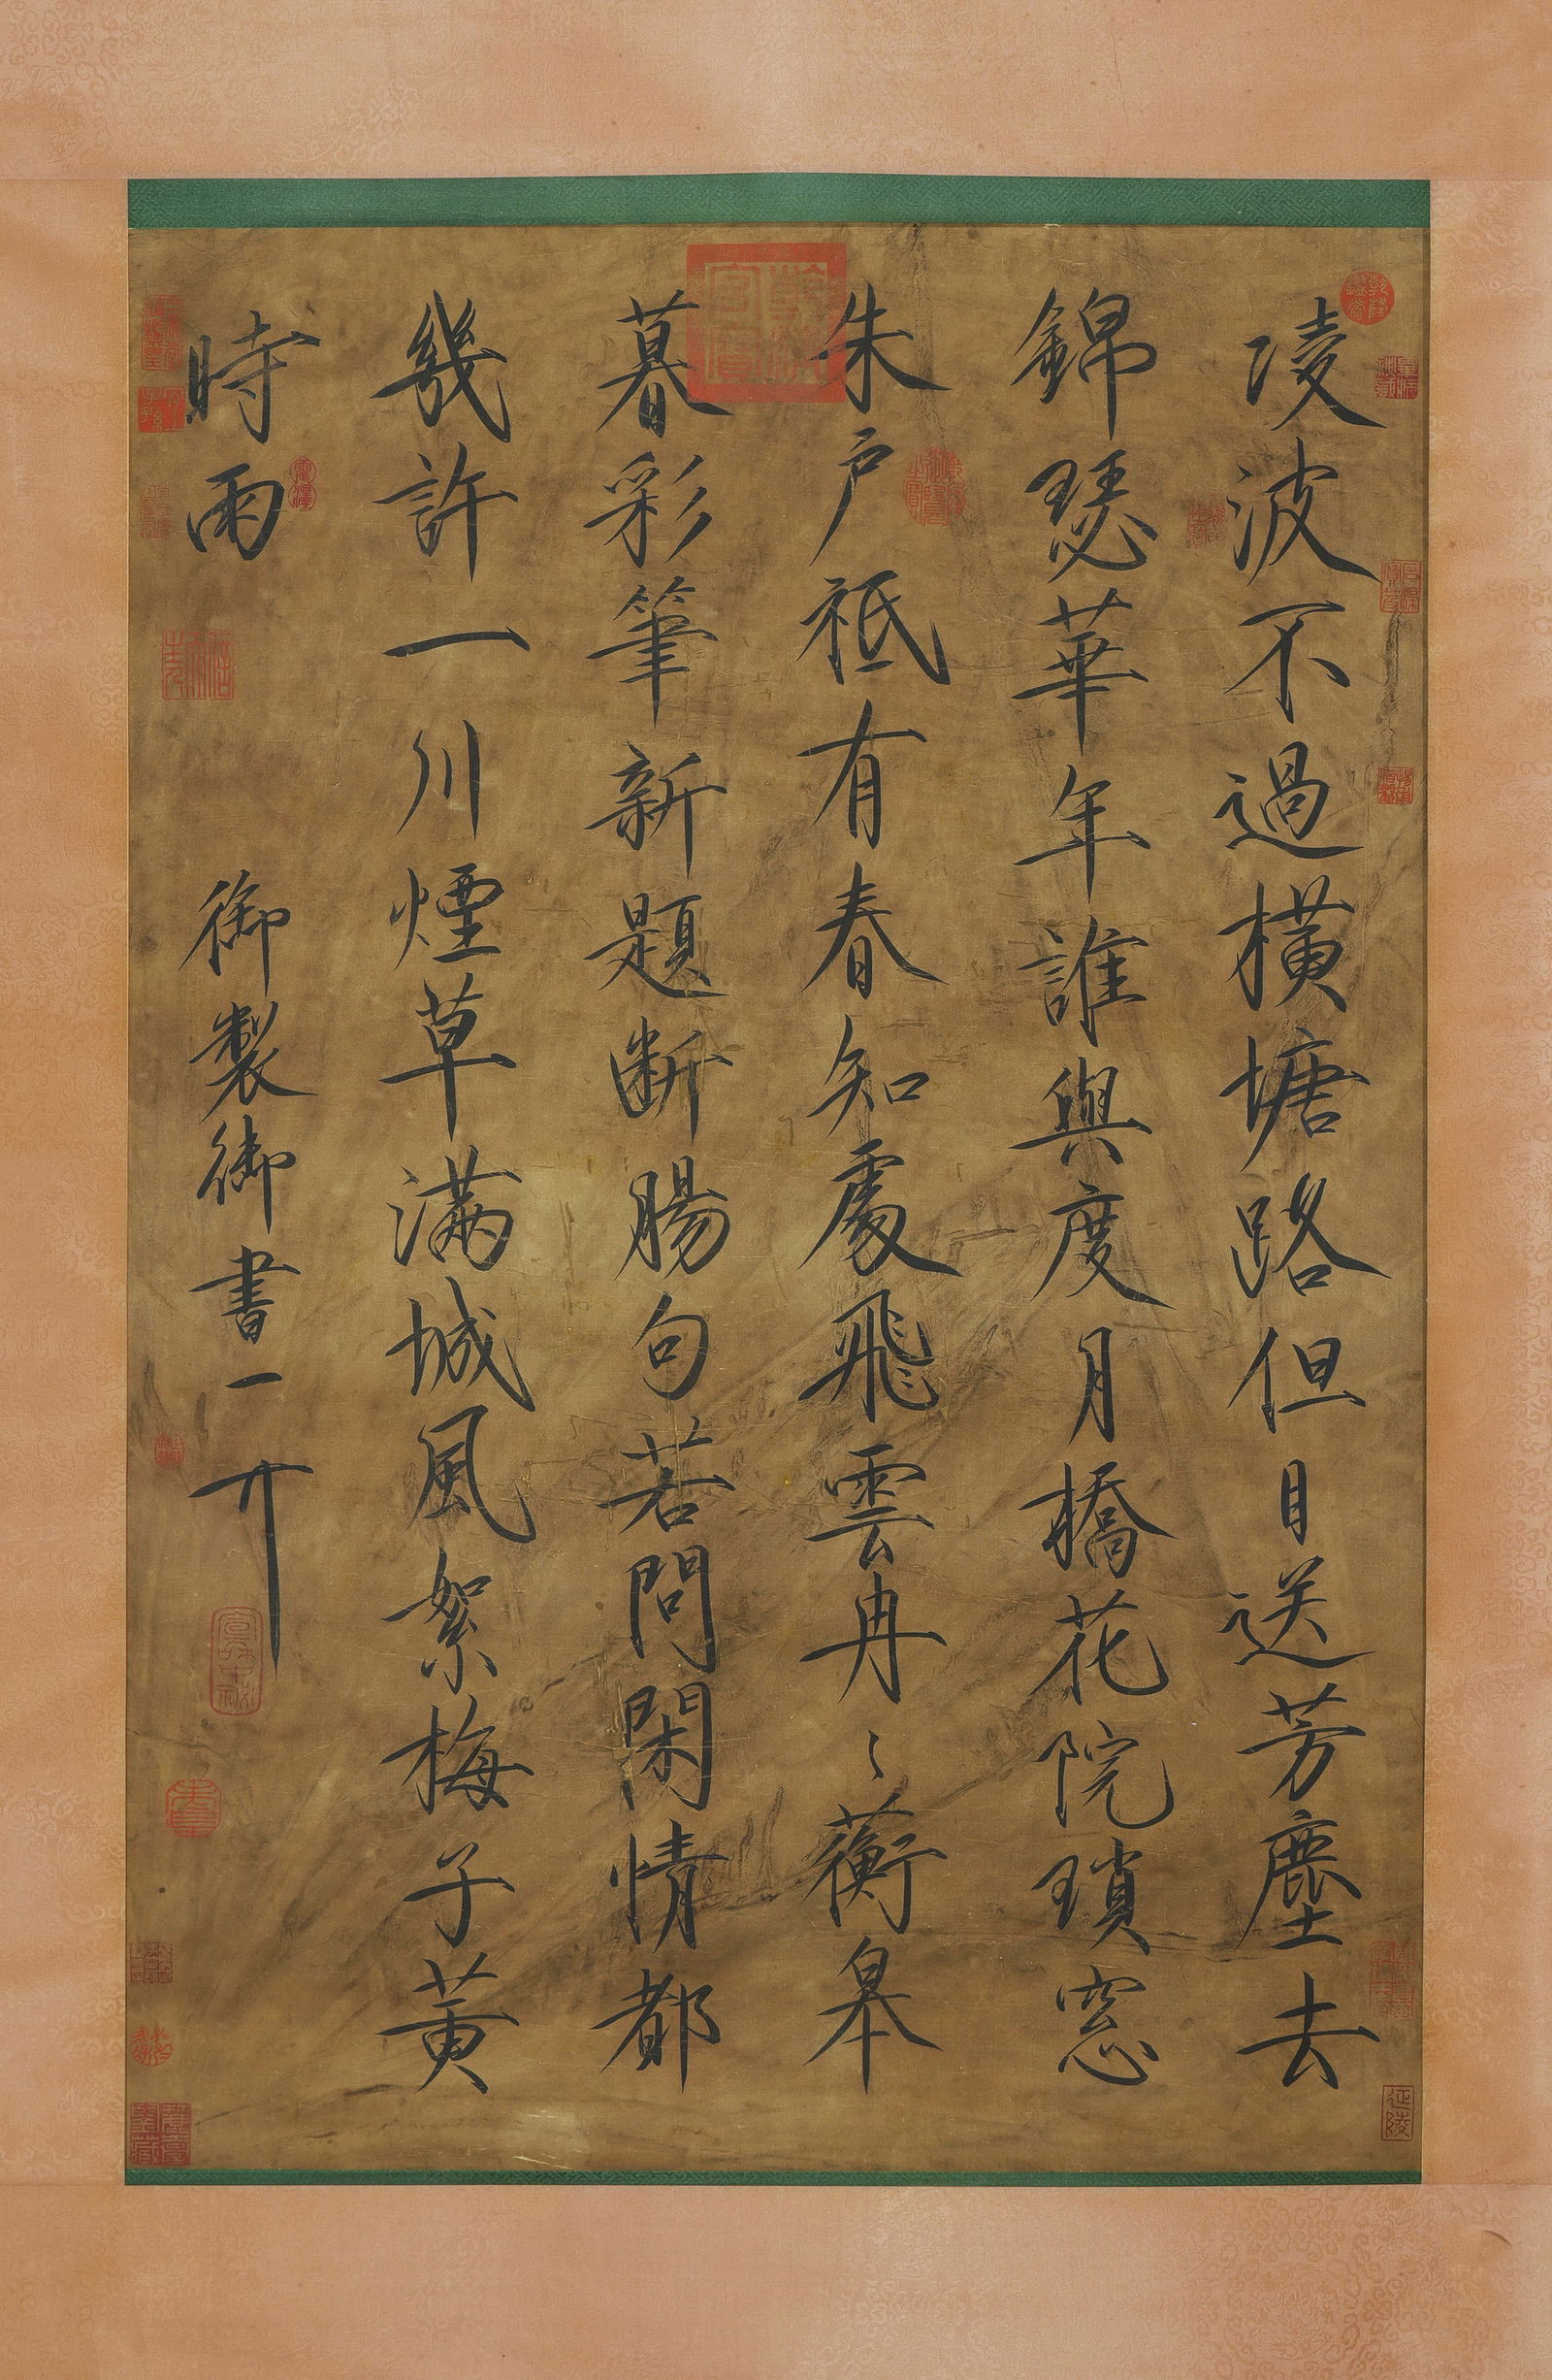 淩波不過橫塘路但目送芳塵去
錦瑟華年誰與度月橋花院瑣窓
朱户祗有春知處飛雲冉〻蘅皋
暮彩筆新題断腸句若問閑情都
幾許一川煙草滿城風絮梅子黃
時雨
御製御書一丌